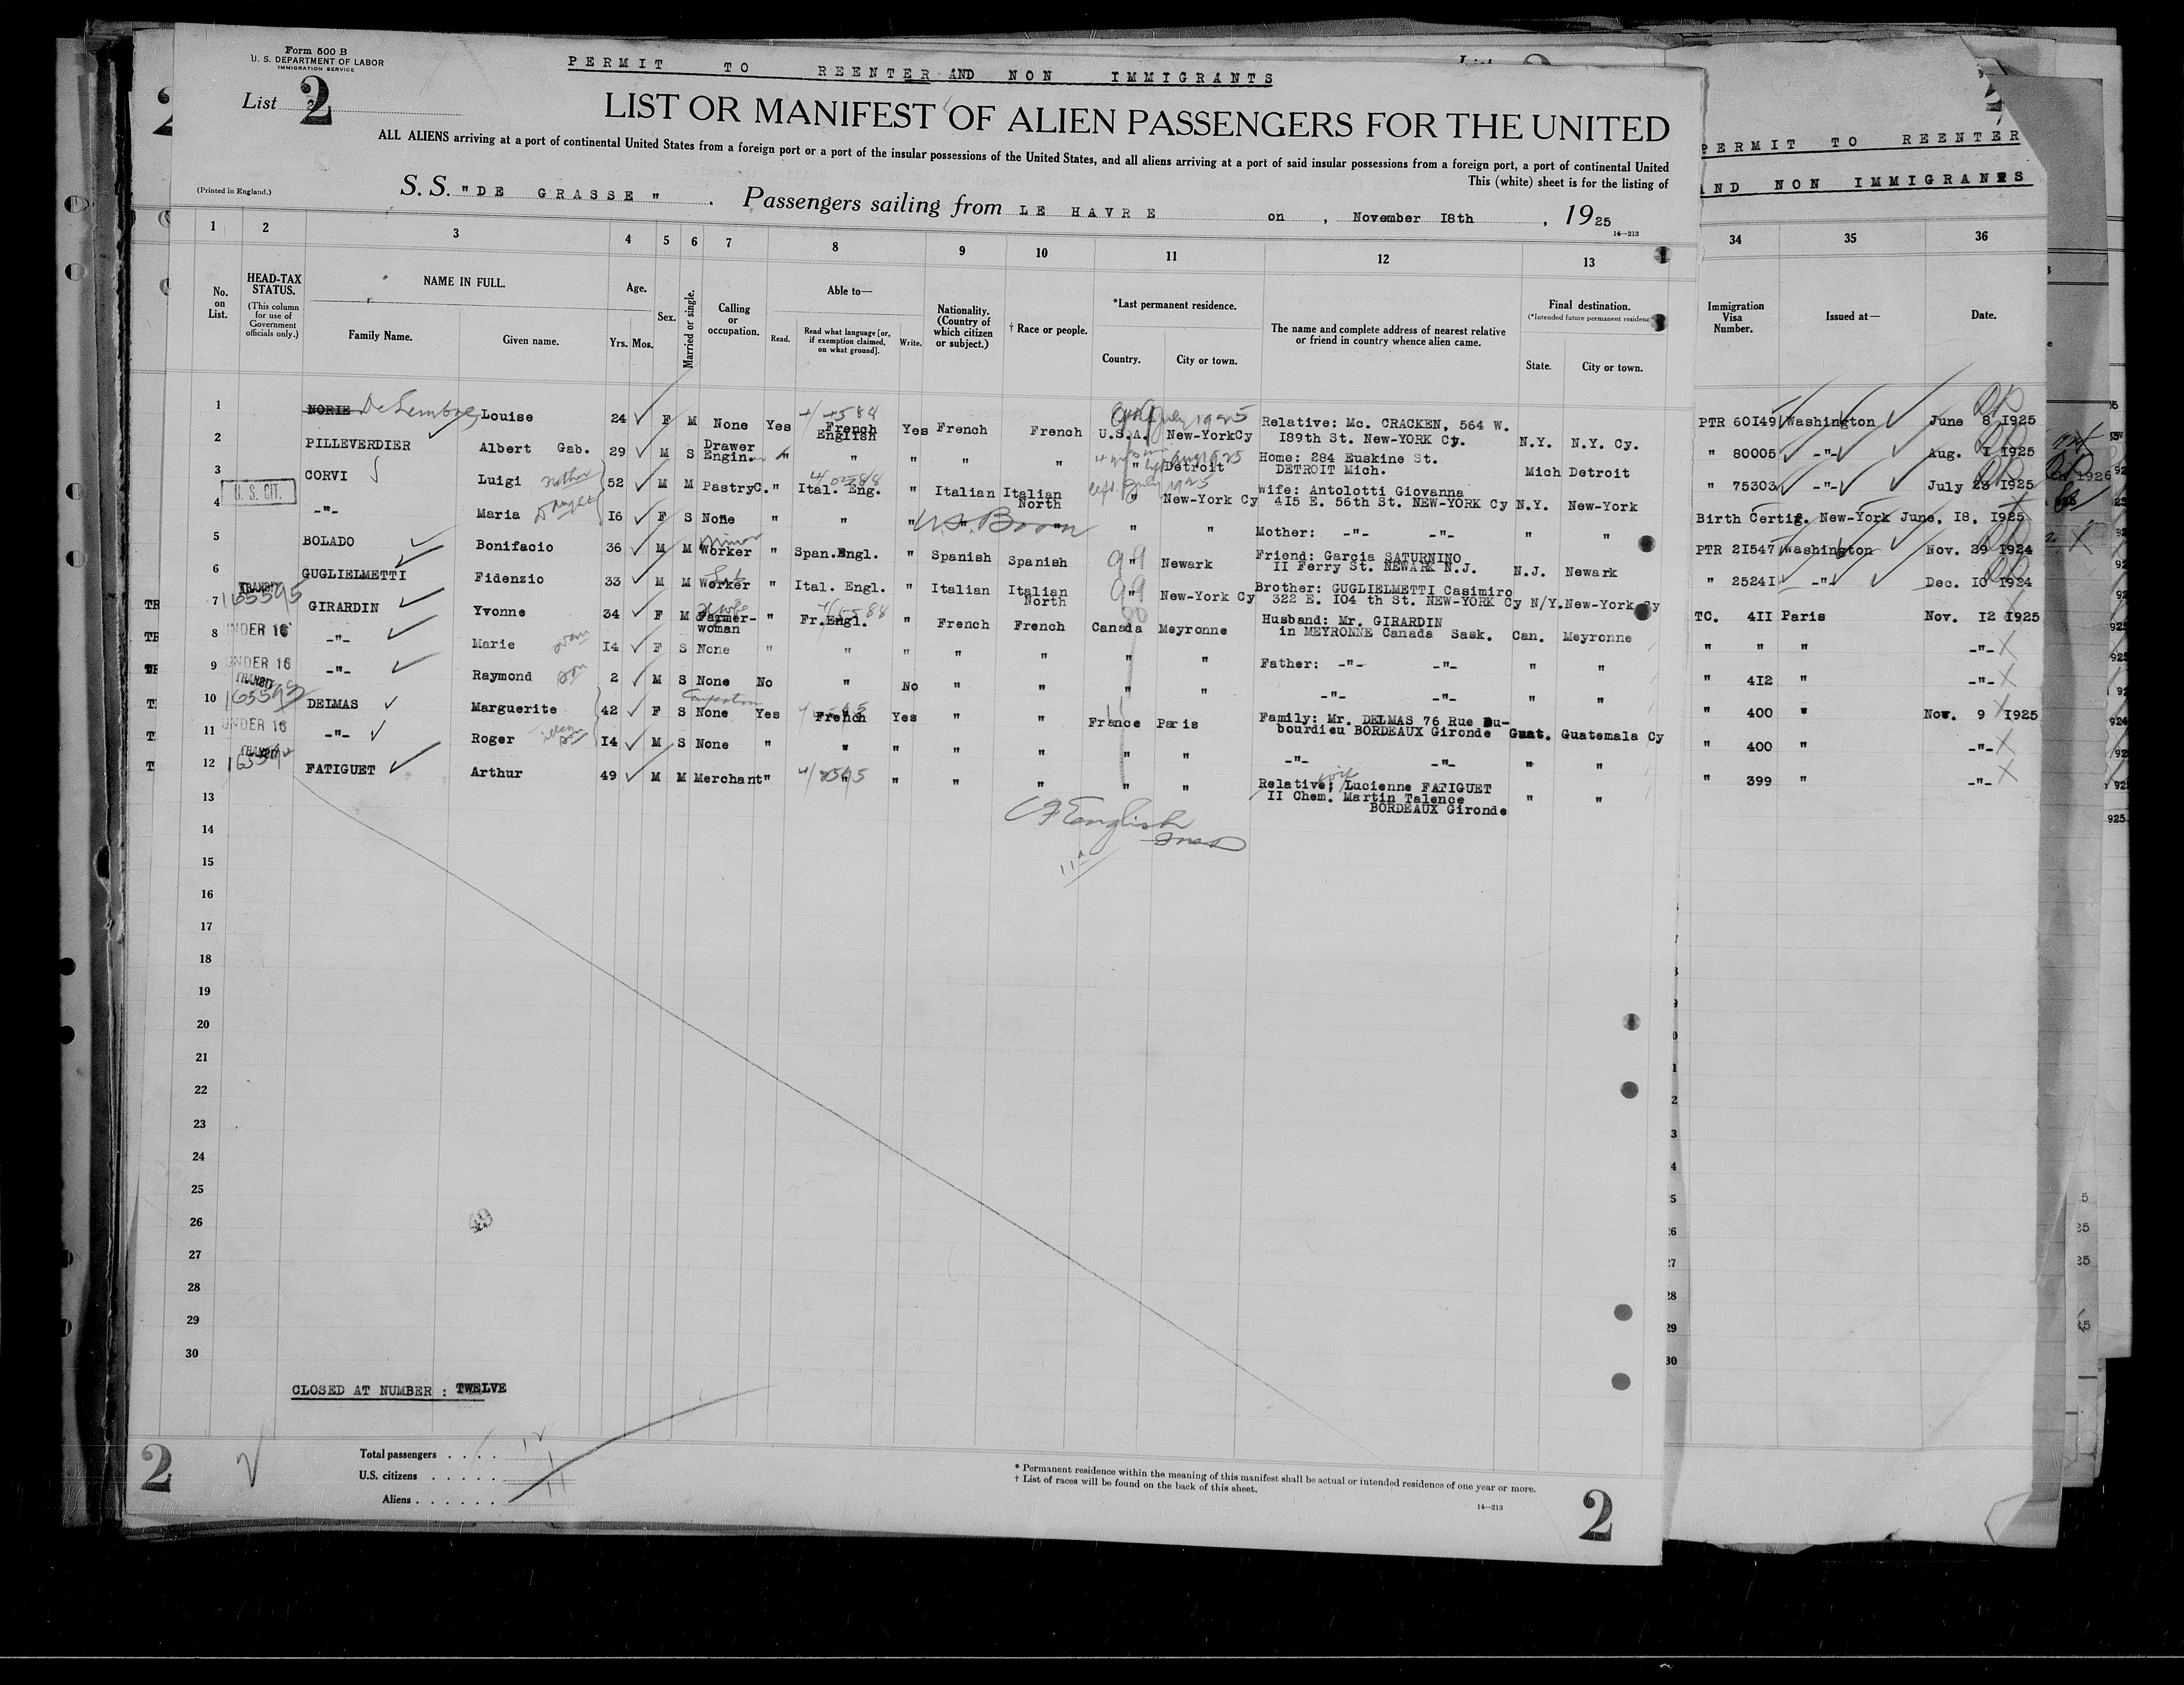 Form 500 B
U. S. DEPARTMENT OF LABOR
IMMIGRATION SERVICE
List 2
PERMIT TO REENTER AND NON IMMIGRANTS
LIST OR MANIFEST OF ALIEN PASSENGERS FOR THE UNITED
ALL ALIENS arriving at a port of continental United States from a foreign port or a port of the insular possessions of the United States, and all aliens arriving at a port of said insular possessions from a foreign port, a port of continental United
This (white) sheet is for the listing of
(Printed in England.)
S. S. "DE GRASSE". Passengers sailing from LE HAVRE on , November 18th , 1925
14—213
PERMIT TO REENTER
AND NON IMMIGRANTS
1 2 3 4 5 6 7 8 9 10 11 12 13 34 35 36
No. on List.
HEAD-TAX STATUS.
(This column for use of Government officials only.)
NAME IN FULL.
Family Name. Given name.
Age.
Yrs. Mos.
Sex.
Married or single.
Calling or occupation.
Able to—
Read. Read what language [or, if exemption claimed, on what ground]. Write.
Nationality. (Country of which citizen or subject.)
† Race or people.
*Last permanent residence.
Country. City or town.
The name and complete address of nearest relative or friend in country whence alien came.
Final destination.
(*Intended future permanent residence
State. City or town.
Immigration Visa Number.
Issued at—
Date.
1 NORIE Louise 24 F M None Yes French English Yes French French U.S.A. New-YorkCy Relative: Mc. CRACKEN, 564 W. 189th St. New-YORK Cy. N.Y. N.Y. Cy. PTR 60149 Washington June 8 1925
2 PILLEVERDIER Albert Gab. 29 M S Drawer Engin. " " " " " " Detroit Home: 284 Euskine St. DETROIT Mich. Mich Detroit " 80005 -"- Aug. 1 1925
3 CORVI Luigi 52 M M PastryC. " Ital. Eng. " Italian Italian North " New-York Cy Wife: Antolotti Giovanna 415 E. 56th St. NEW-YORK Cy N.Y. New-York " 75303 -"- July 23 1925
4 U. S. CIT. -"- Maria 16 F S None " " " U.S. Born " " Mother: -"- -"- " " Birth Certig. New-York June, 18, 1925
5 BOLADO Bonifacio 36 M M Worker " Span.Engl. " Spanish Spanish " Newark Friend: Garcia SATURNINO II Ferry St. NEWARK N.J. N.J. Newark PTR 21547 Washington Nov. 29 1924
6 GUGLIELMETTI Fidenzio 33 M M Worker " Ital. Engl. " Italian Italian North " New-York Cy Brother: GUGLIELMETTI Casimiro 322 E. 104 th St. NEW-YORK Cy N/Y. New-York Cy " 25241 -"- Dec. 10 1924
7 TRANSIT 165595 GIRARDIN Yvonne 34 F M Farmer-woman " Fr.Engl. " French French Canada Meyronne Husband: Mr. GIRARDIN in MEYRONNE Canada Sask. Can. Meyronne TC. 411 Paris Nov. 12 1925
8 UNDER 16 -"- Marie 14 F S None " " " " " " " Father: -"- -"- " " " " " -"-
9 UNDER 16 -"- Raymond son 2 M S None No " No " " " " -"- -"- " " " 412 " -"-
10 TRANSIT DELMAS Marguerite 42 F S None Yes French Yes " " France Paris Family: Mr. DELMAS 76 Rue Du-bourdieu BORDEAUX Gironde Guat. Guatemala Cy " 400 " Nov. 9 1925
11 UNDER 16 -"- Roger 14 M S None " " " " " " " -"- -"- " " " 400 " -"-
12 TRANSIT FATIGUET Arthur 49 M M Merchant " " " " " " " Relative; wife Lucienne FATIGUET II Chem. Martin Talence BORDEAUX Gironde " " " 399 " -"-
13
14
15
16
17
18
19
20
21
22
23
24
25
26
27
28
29
30
CLOSED AT NUMBER : TWELVE
Total passengers . . . . 12
U.S. citizens . . . . . 1
Aliens . . . . . . 11
* Permanent residence within the meaning of this manifest shall be actual or intended residence of one year or more.
† List of races will be found on the back of this sheet.
14—213
2 2